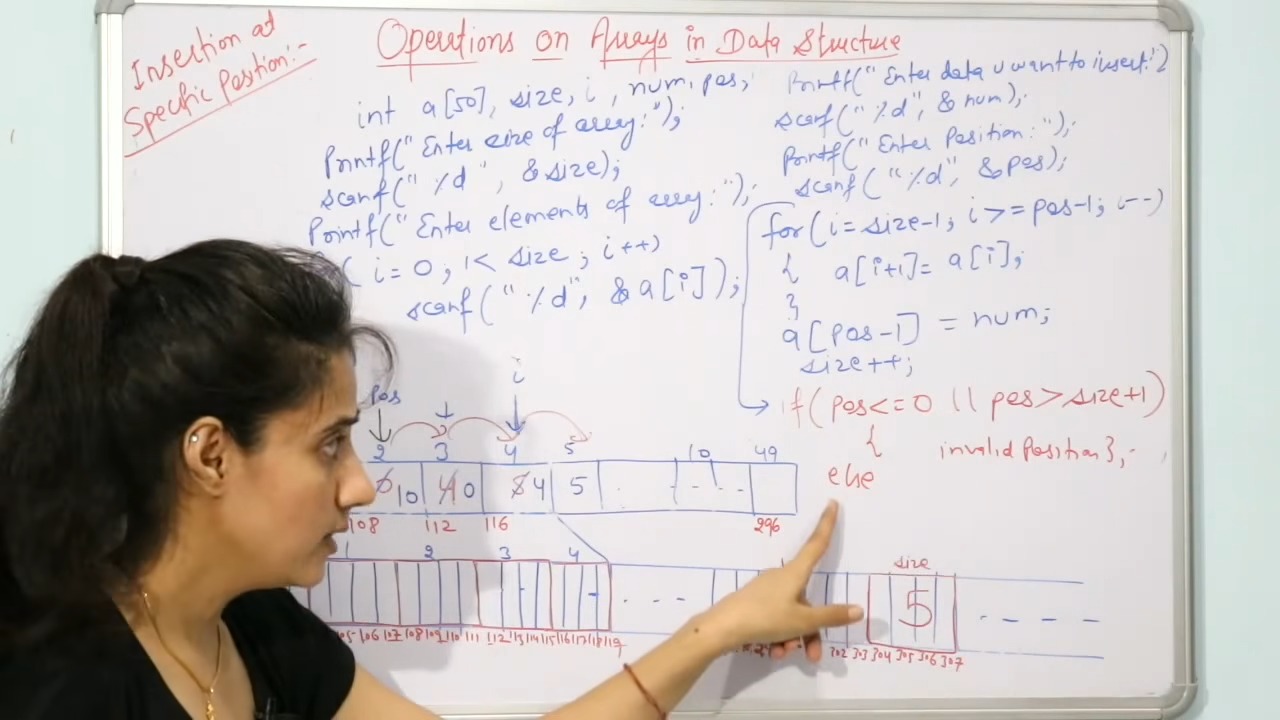 Insertion at
Specific Position:-
Operations on Arrays in Data Structure
int a[50], size, i, num, pos;
Printf("Enter size of array:");
scanf("%d", &size);
Printf("Enter elements of array:");
( i=0; i< size; i++)
scanf("%d", &a[i]);
Printf("Enter data u want to insert:")
scanf("%d", &num);
Printf("Enter Position:");
scanf("%d", &pos);
for(i=size-1; i>=pos-1; i--)
{ a[i+1]= a[i];
}
a[pos-1] = num;
size++;
if( pos<=0 || pos>size+1)
{ invalid Position};
else
i
Pos
2 3 4 5 10 49
10 0 4 5
108 112 116 296
1 2 3 4 size
5
105 106 107 108 109 110 111 112 113 114 115 116 117 118 119 302 303 304 305 306 307